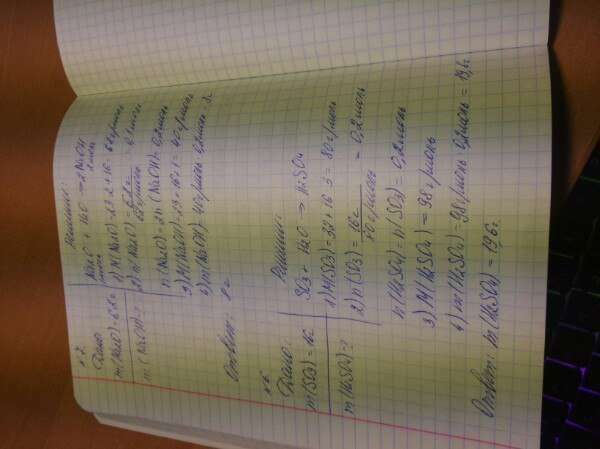 №7.
Дано:
m(Na2O)=6,2г
m(NaOH)-?
Решение:
Na2O + H2O → 2NaOH
1моль 2моль
1) M(Na2O)=23·2+16=62г/моль
2) n(Na2O)=6,2г/62г/моль=0,1моль
n(Na2O)=2n(NaOH)=0,2моль
3) M(NaOH)=23+16+1=40г/моль
4) m(NaOH)=40г/моль·0,2моль=8г
Ответ: 8г
№6.
Дано:
m(SO3)=16г
m(H2SO4)-?
Решение:
SO3 + H2O → H2SO4
1) M(SO3)=32+16·3=80г/моль
2) n(SO3)=16г/80г/моль=0,2моль
n(H2SO4)=n(SO3)=0,2моль
3) M(H2SO4)=98г/моль
4) m(H2SO4)=98г/моль·0,2моль=19,6г
Ответ: m(H2SO4)=19,6г